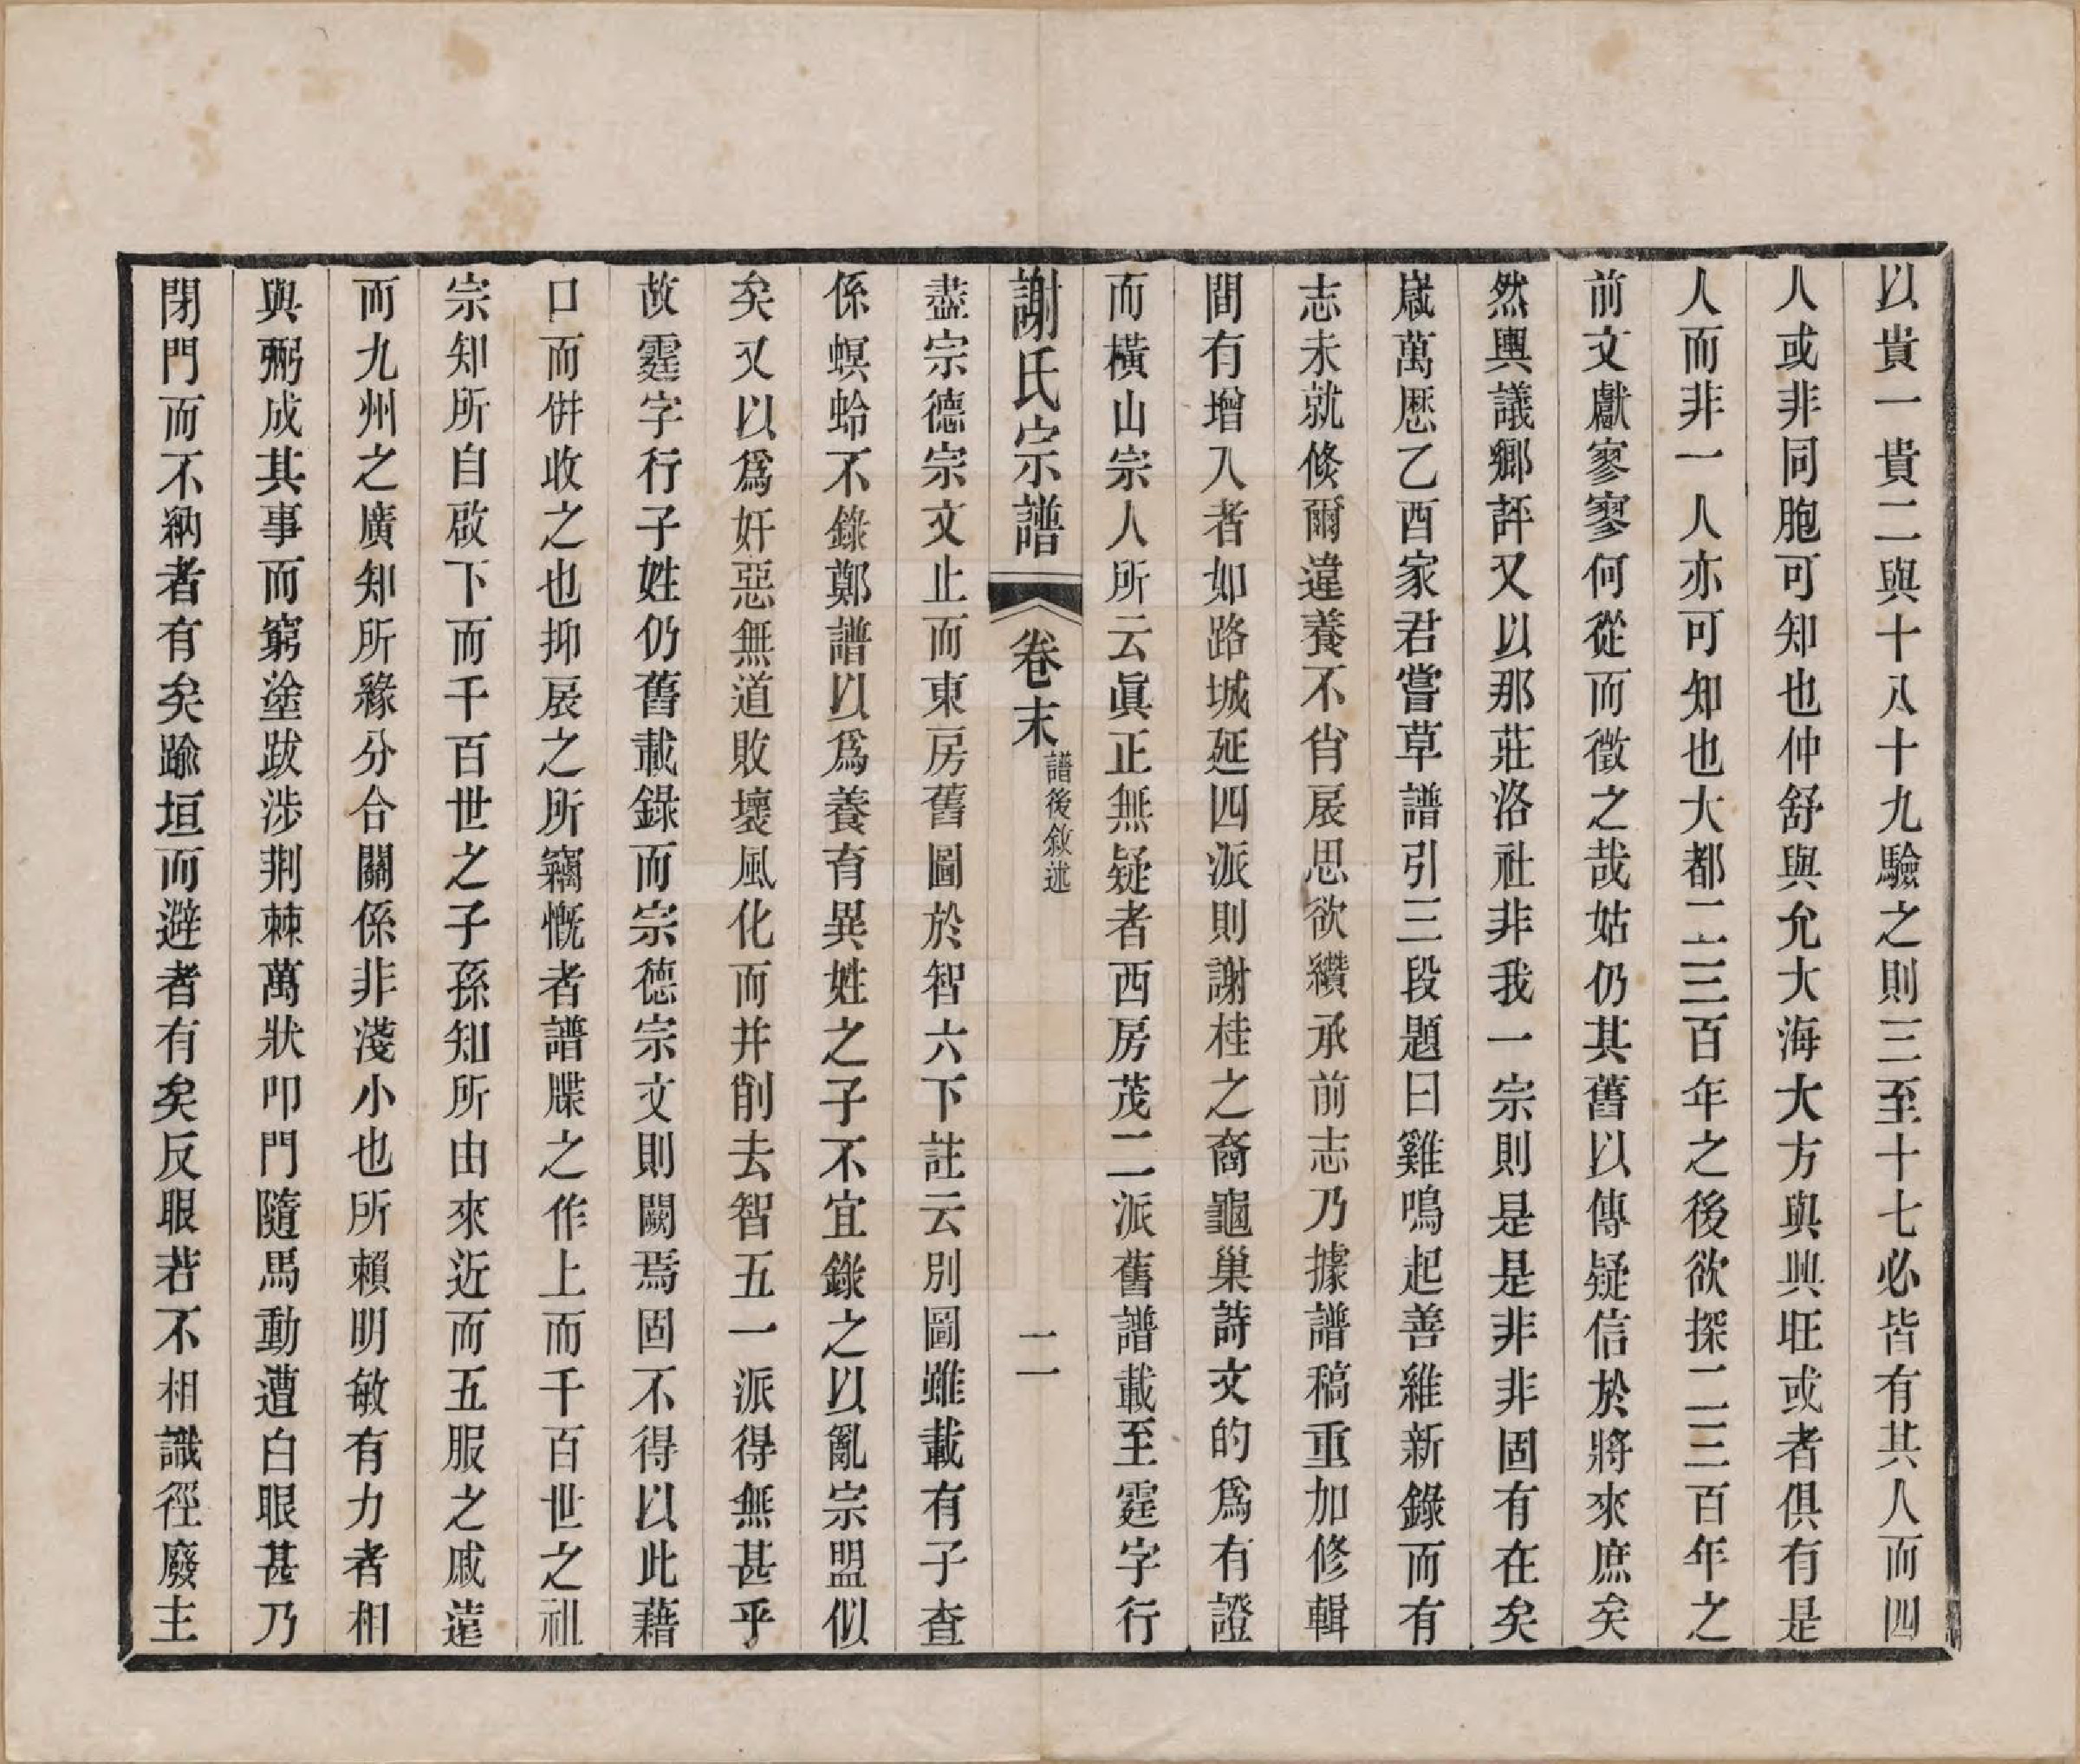 以貴一貴二與十八十九驗之則三至十七必皆有其人而四
人或非同胞可知也仲舒與允大海大方與興旺或者俱有是
人而非一人亦可知也大都二三百年之後欲探二三百年之
前文獻寥寥何從而徵之哉姑仍其舊以傳疑信於將來庶矣
然輿議鄉評又以那莊洛社非我一宗則是是非非固有在矣
嵗萬厯乙酉家君嘗草譜引三段題曰雞鳴起善維新錄而有
志未就倐爾違養不肖扆思欲纘承前志乃據譜稿重加修輯
間有增入者如路城延四派則謝桂之裔龜巢詩文的爲有證
而橫山宗人所云眞正無疑者西房茂二派舊譜載至霆字行
謝氏宗譜 卷末 譜後敘述 二
盡宗德宗文止而東房舊圖於智六下註云別圖雖載有子查
係螟蛉不錄鄭譜以爲養育異姓之子不宜錄之以亂宗盟似
矣又以爲奸惡無道敗壞風化而并削去智五一派得無甚乎
故霆字行子姓仍舊載錄而宗德宗文則闕焉固不得以此藉
口而倂收之也抑扆之所竊慨者譜牒之作上而千百世之祖
宗知所自啟下而千百世之子孫知所由來近而五服之戚遠
而九州之廣知所緣分合關係非淺小也所賴明敏有力者相
與弼成其事而窮塗跋涉荆棘萬狀叩門隨馬動遭白眼甚乃
閉門而不納者有矣踰垣而避者有矣反眼若不相識徑廢主